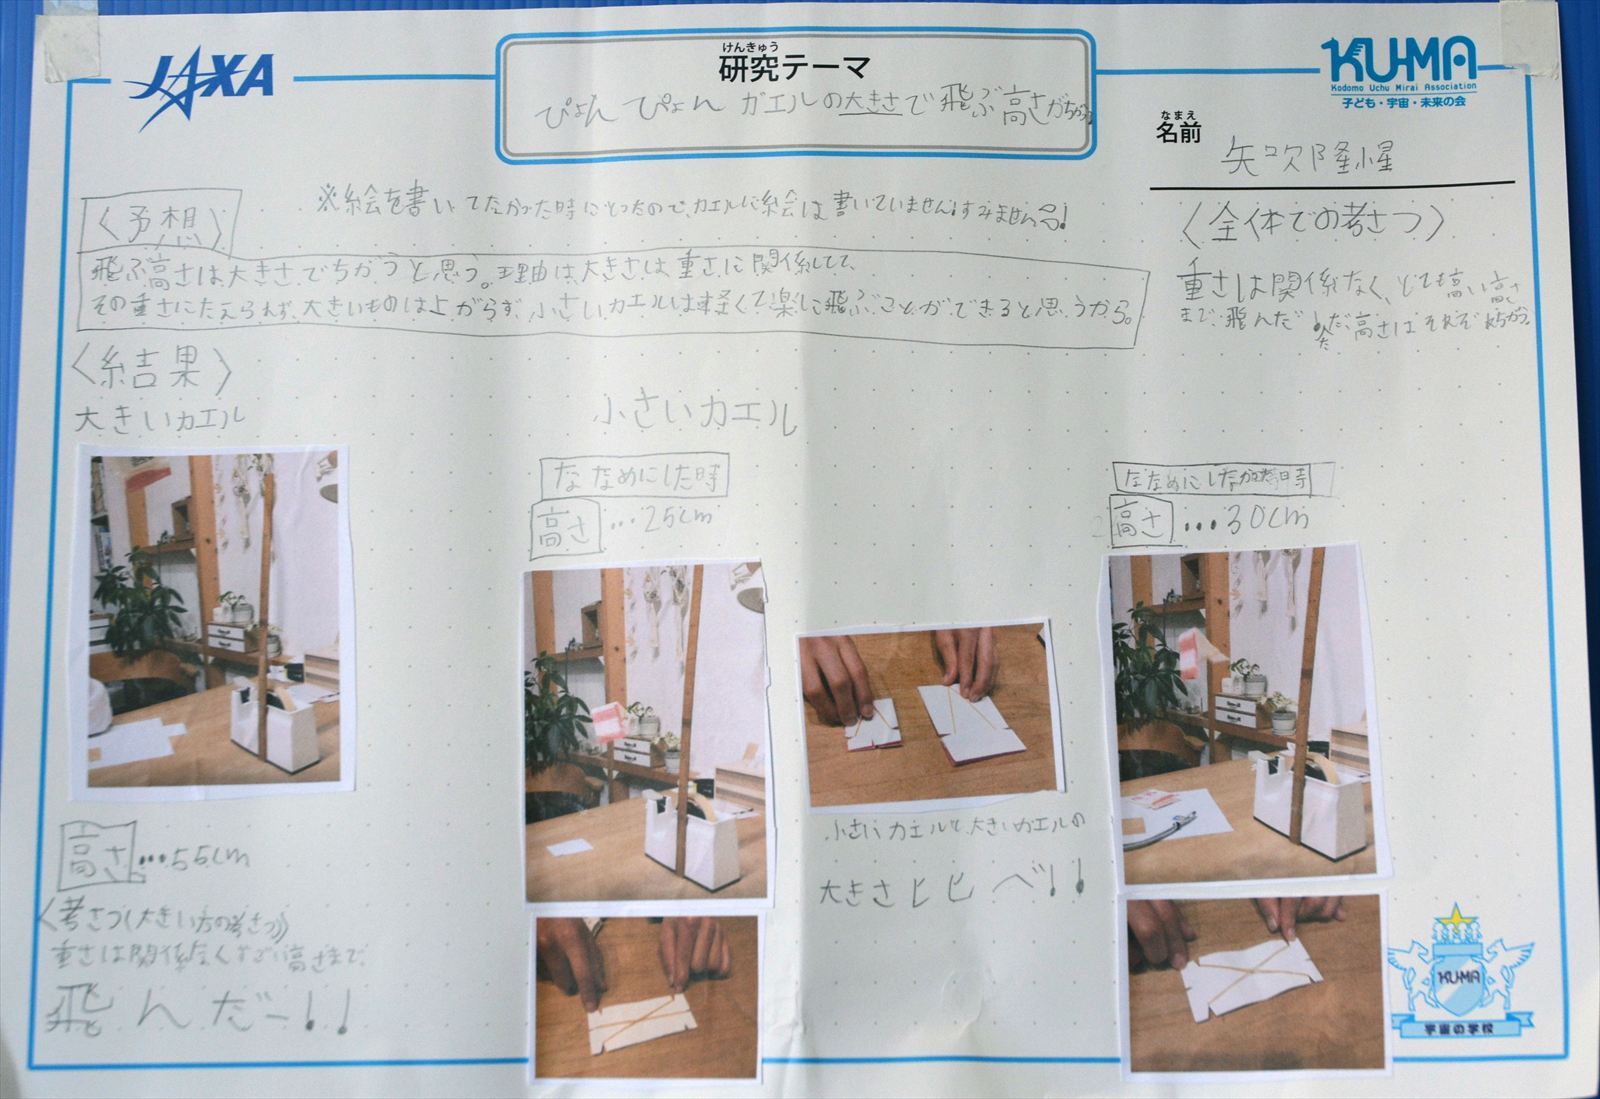 JAXA
けんきゅう
研究テーマ
ぴょんぴょんガエルの大きさで飛ぶ高さがちがう?
KU-MA
Kodomo Uchu Mirai Association
子ども・宇宙・未来の会
なまえ
名前
矢吹隆惺
〈予想〉
※絵を書いてなかった時にとったので、カエルに絵は書いていません!すみません!
飛ぶ高さは大きさでちがうと思う。理由は大きさは重さに関係してて、
その重さにたえられず、大きいものは上がらず、小さいカエルは軽くて楽に飛ぶことができると思うから。
〈全体での考さつ〉
重さは関係なく、とても高い高さ
まで飛んだ!ただ高さはそれぞれちがう。
〈結果〉
大きいカエル
高さ…55cm
〈考さつ(大きい方の考さつ)〉
重さは関係なくすごい高さまで
飛んだー!!
小さいカエル
ななめにした時
高さ…25cm
小さいカエルと大きいカエルの
大きさヒヒべ!!
ななめにしなかった時
高さ…30cm
KU-MA
宇宙の学校